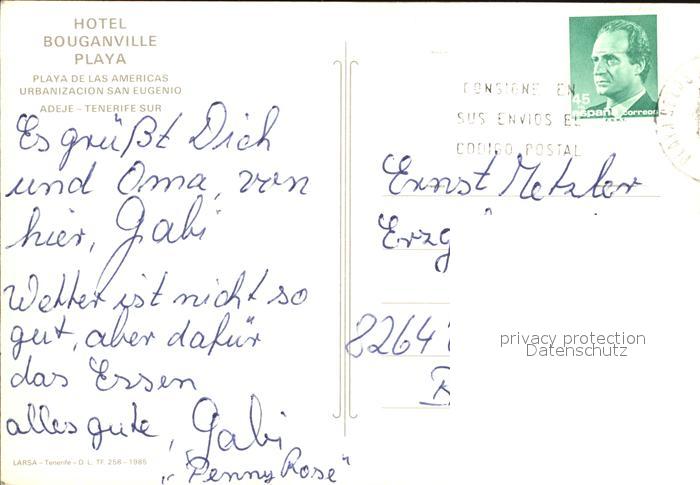 HOTEL
BOUGANVILLE
PLAYA
PLAYA DE LAS AMERICAS
URBANIZACION SAN EUGENIO
ADEJE – TENERIFE SUR
Es grüßt Dich
und Oma, von
hier, Gabi
Wetter ist nicht so
gut, aber dafür
das Essen
alles gute, Gabi
„Penny Rose“
LARSA – Tenerife – D. L. TF. 258 – 1985
45
España correos
CONSIGNE EN
SUS ENVIOS EL
CODIGO POSTAL
Ernst Metzler
Erzg
8264
privacy protection
Datenschutz